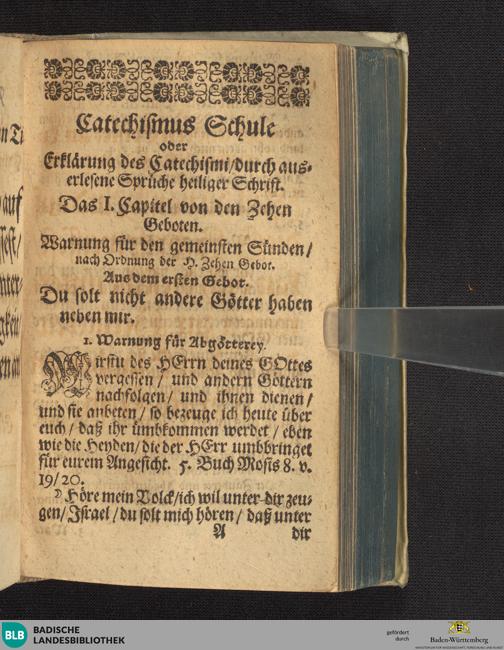 Catechismus Schule
oder
Erklärung des Catechismi/durch aus-
erlesene Sprüche heiliger Schrift.
Das I. Capitel von den Zehen
Geboten.
Warnung für den gemeinsten Sünden/
nach Ordnung der H. Zehen Gebot.
Aus dem ersten Gebot.
Du solt nicht andere Götter haben
neben mir.
1. Warnung für Abgötterey.
Wirstu des HErrn deines GOttes
vergessen/ und andern Göttern
nachfolgen/ und ihnen dienen/
und sie anbeten/ so bezeuge ich heute über
euch/ daß ihr ümbkommen werdet/ eben
wie die Heyden/die der HErr umbbringet
für eurem Angesicht. 5. Buch Mosis 8. v.
19/20.
Höre mein Volck/ich wil unter dir zeu-
gen/Israel/du solt mich hören/ daß unter
A dir
BLB BADISCHE
LANDESBIBLIOTHEK
gefördert
durch
Baden-Württemberg